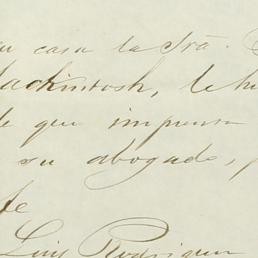 su casa la Srã.
Mackintosh, le hi
de que impuesta
su abogado, p
fe
Luis Rodriguez